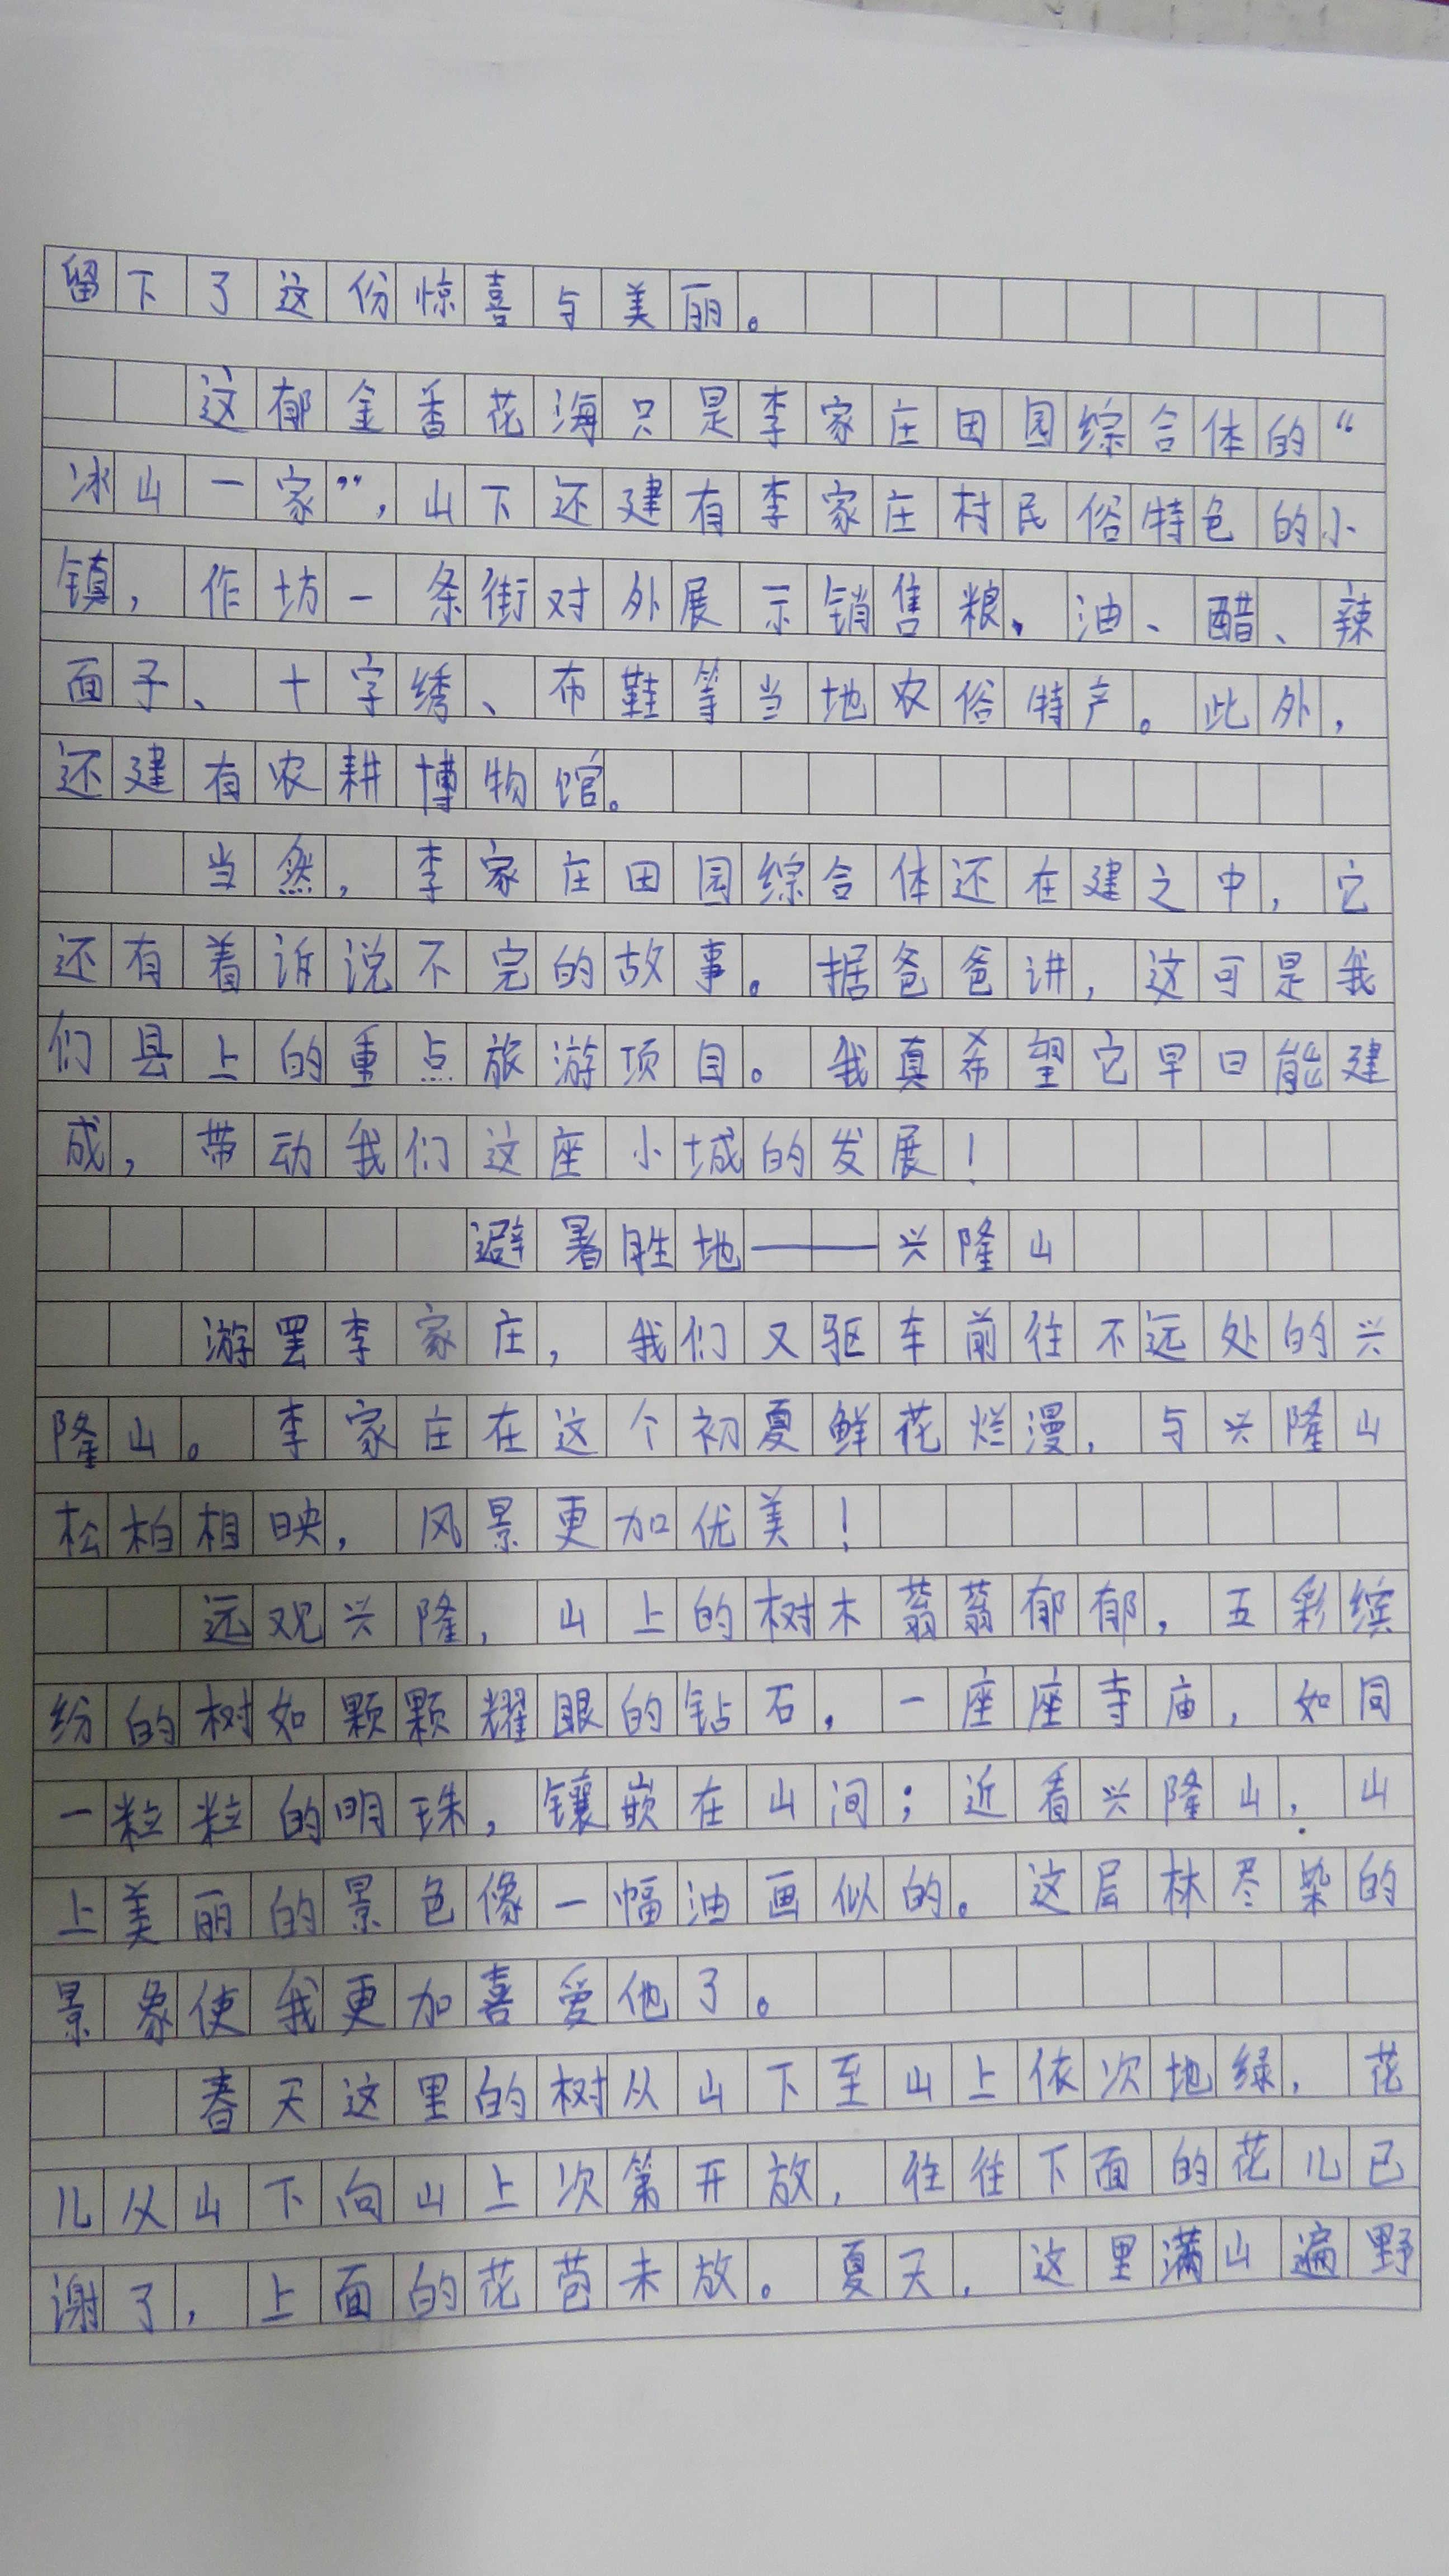 留下了这份惊喜与美丽。
这郁金香花海只是李家庄田园综合体的“
冰山一家”，山下还建有李家庄村民俗特色的小
镇，作坊一条街对外展示销售粮、油、醋、辣
面子、十字绣、布鞋等当地农俗特产。此外，
还建有农耕博物馆。
当然，李家庄田园综合体还在建之中，它
还有着诉说不完的故事。据爸爸讲，这可是我
们县上的重点旅游项目。我真希望它早日能建
成，带动我们这座小城的发展！
避暑胜地——兴隆山
游罢李家庄，我们又驱车前往不远处的兴
隆山。李家庄在这个初夏鲜花烂漫，与兴隆山
松柏相映，风景更加优美！
远观兴隆，山上的树木蓊蓊郁郁，五彩缤
纷的树如颗颗耀眼的钻石，一座座寺庙，如同
一粒粒的明珠，镶嵌在山间；近看兴隆山，山
上美丽的景色像一幅油画似的。这层林尽染的
景象使我更加喜爱他了。
春天这里的树从山下至山上依次地绿，花
儿从山下向山上次第开放，往往下面的花儿已
谢了，上面的花苞未放。夏天，这里满山遍野